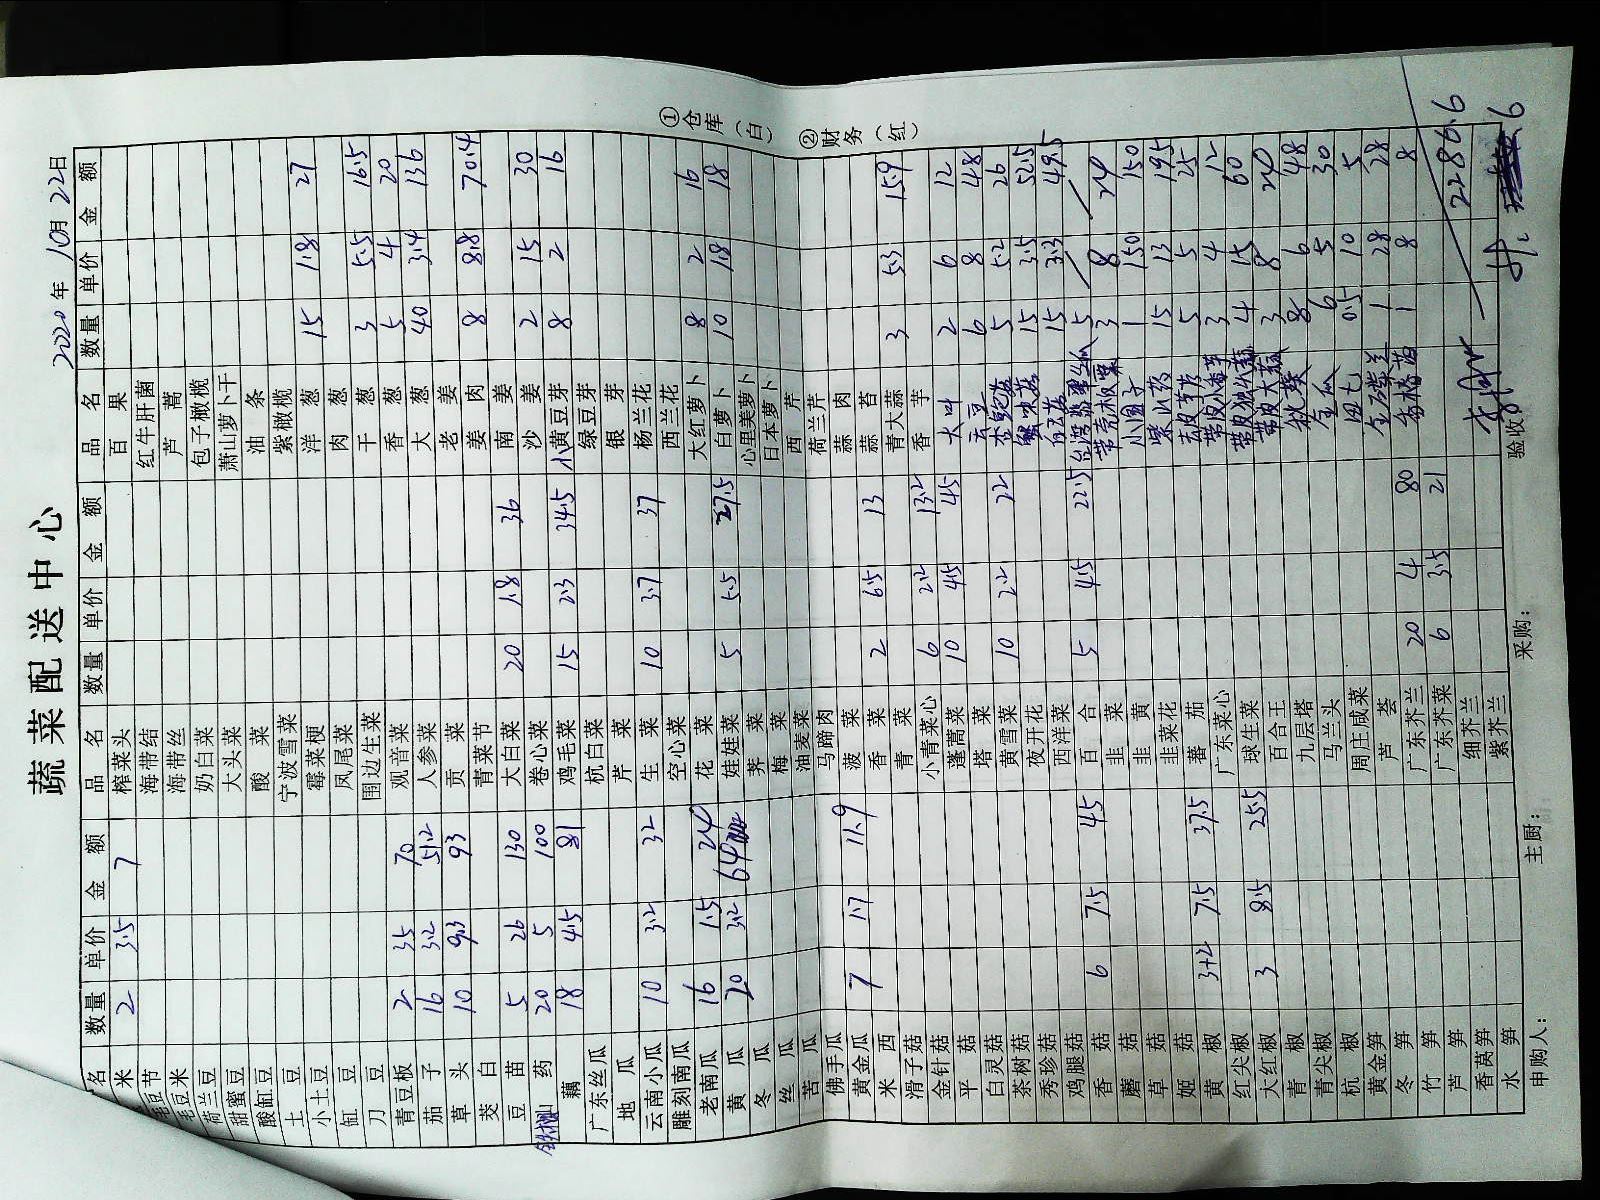 蔬菜配送中心
2020年10月22日
名 数量 单价 金额 品名 数量 单价 金额 品名 数量 单价 金额
米 2 3.5 7 榨菜头 百果
海带结 红牛肝菌
毛豆米 海带丝 芦蒿
荷兰豆 奶白菜 包子橄榄
甜蜜豆 大头菜 萧山萝卜干
酸缸豆 酸菜 油条
土豆 宁波雪菜 紫橄榄
小土豆 霉菜梗 洋葱 15 1.8 27
缸豆 凤尾菜 肉葱
刀豆 围边生菜 干葱 3 5.5 16.5
青豆板 2 35 70 观音菜 香葱 5 4 20
茄子 16 3.2 51.2 人参菜 大葱 40 3.4 136
草头 10 9.3 93 贡菜 老姜
茭白 青菜节 姜肉 8 8.8 70.4
豆苗 5 26 130 大白菜 20 1.8 36 南姜
药 20 5 100 卷心菜 沙姜 2 15 30
藕 18 4.5 81 鸡毛菜 15 2.3 34.5 小黄豆芽 8 2 16
广东丝瓜 杭白菜 绿豆芽
地瓜 芹菜 银芽
云南小瓜 10 3.2 32 生菜 10 3.7 37 杨兰花
雕刻南瓜 空心菜 西兰花
老南瓜 16 1.5 24 花菜 大红萝卜 8 2 16
黄瓜 20 3.2 64 娃娃菜 5 5.5 27.5 白萝卜 10 1.8 18
冬瓜 荠菜 心里美萝卜
丝瓜 梅菜 日本萝卜
苦瓜 油麦菜 西芹
佛手瓜 马蹄肉 荷兰芹
黄金瓜 7 1.7 11.9 菠菜 蒜肉
米西 香菜 2 6.5 13 蒜苔
滑子菇 青菜 青大蒜 3 5.3 15.9
金针菇 小青菜心 6 2.2 13.2 香芋
平菇 蓬蒿菜 10 4.5 45 大叶 2 6 12
白灵菇 塔菜 6 8 48
茶树菇 黄雪菜 10 2.2 22 5 5.2 26
秀珍菇 夜开花 15 3.5 52.5
鸡腿菇 西洋菜 15 3.3 49.5
香菇 6 7.5 45 百合 5 4.5 22.5 5
蘑菇 韭菜 3 8 24
草菇 韭黄 小圆子 1 150 150
姬菇 韭菜花 柴山药 15 13 195
黄椒 3+2 7.5 37.5 蕃茄 5 5 25
红尖椒 广东菜心 3 4 12
大红椒 3 8.5 25.5 球生菜 4 15 60
青椒 百合王 带皮大蒜 3 8
青尖椒 九层塔 8 6 48
杭椒 马兰头 6 5 30
黄金笋 周庄咸菜 0.5 10 5
冬笋 芦荟 1 28 28
竹笋 广东芥兰 20 4 80 1 8 8
芦笋 广东芥菜 6 3.5 21
香莴笋 细芥兰 2286.6
水笋 紫芥兰
申购人： 主厨： 采购： 验收：
①仓库（白） ②财务（红）